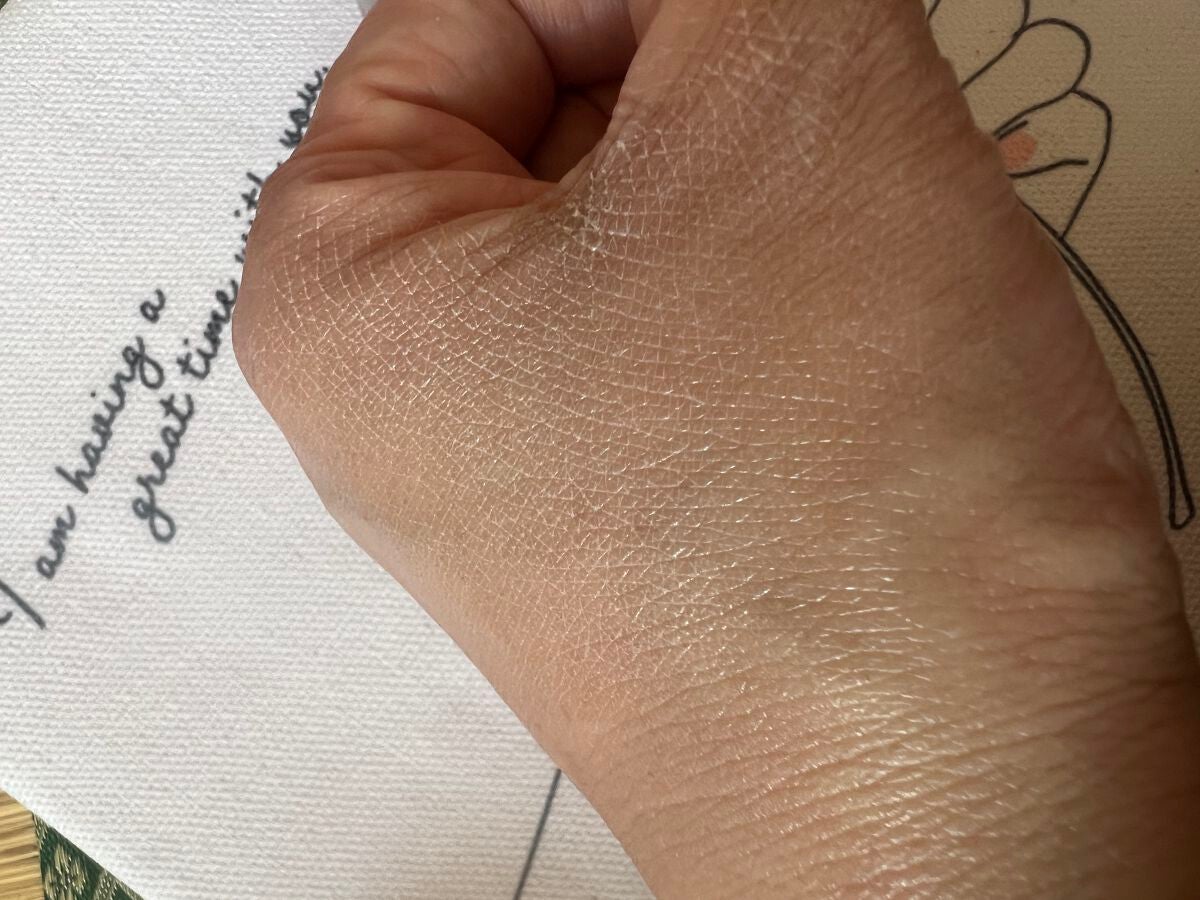 I am having a
great time with you.